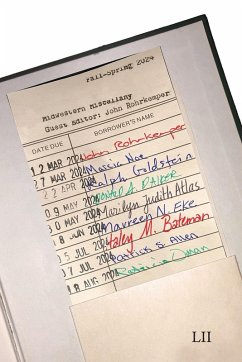 Fall-Spring 2024
Midwestern Miscellany
Guest Editor: John Rohrkemper
DATE DUE BORROWER'S NAME
12 MAR 2024 John Rohrkemper
27 MAR 2024 Marcia Noe
22 APR 2024 Ralph Goldstein
MAY 20
09 MAY 2024 Marilyn Judith Atlas
20 MAY 2024 Maureen N. Eke
JUN 2024 Haley M. Bateman
05 JUL 2024 Patrick S. Allen
JUL 2024 Patricia Oman
18 AUG 2024
LII